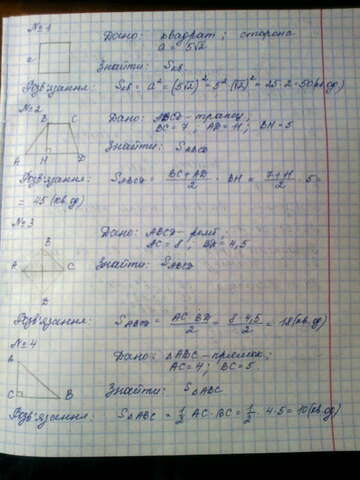 №1
Дано: квадрат; сторона
a = 5√2
a
Знайти: Sкв
Розв'язання: Sкв = a² = (5√2)² = 5²·(√2)² = 25·2 = 50 (кв.од)
№2
B C
Дано: ABCD - трапец,
BC = 7; AD = 11; BH = 5
Знайти: SABCD
A H D
Розв'язання: SABCD = (BC + AD)/2 · BH = (7+11)/2 · 5 =
= 45 (кв.од)
№3
B
Дано: ABCD - ромб,
AC = 8; BD = 4,5
A C
Знайти: SABCD
D
Розв'язання: SABCD = (AC·BD)/2 = (8·4,5)/2 = 18 (кв.од)
№4
A
Дано: △ABC - прямок;
AC = 4; BC = 5
C B
Знайти: S△ABC
Розв'язання: S△ABC = 1/2 AC·BC = 1/2 · 4·5 = 10 (кв.од)